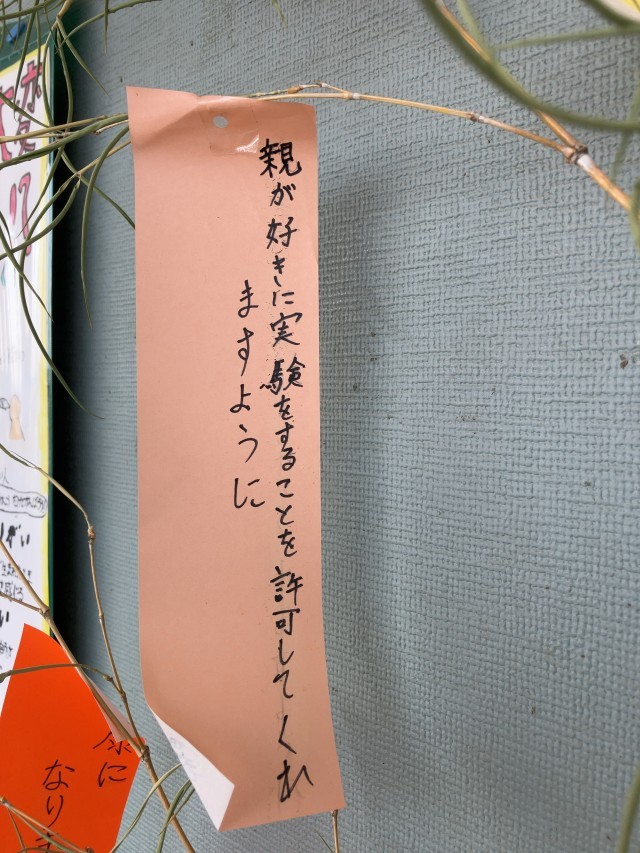 親が好きに実験をすることを許可してくれ
ますように
になりま